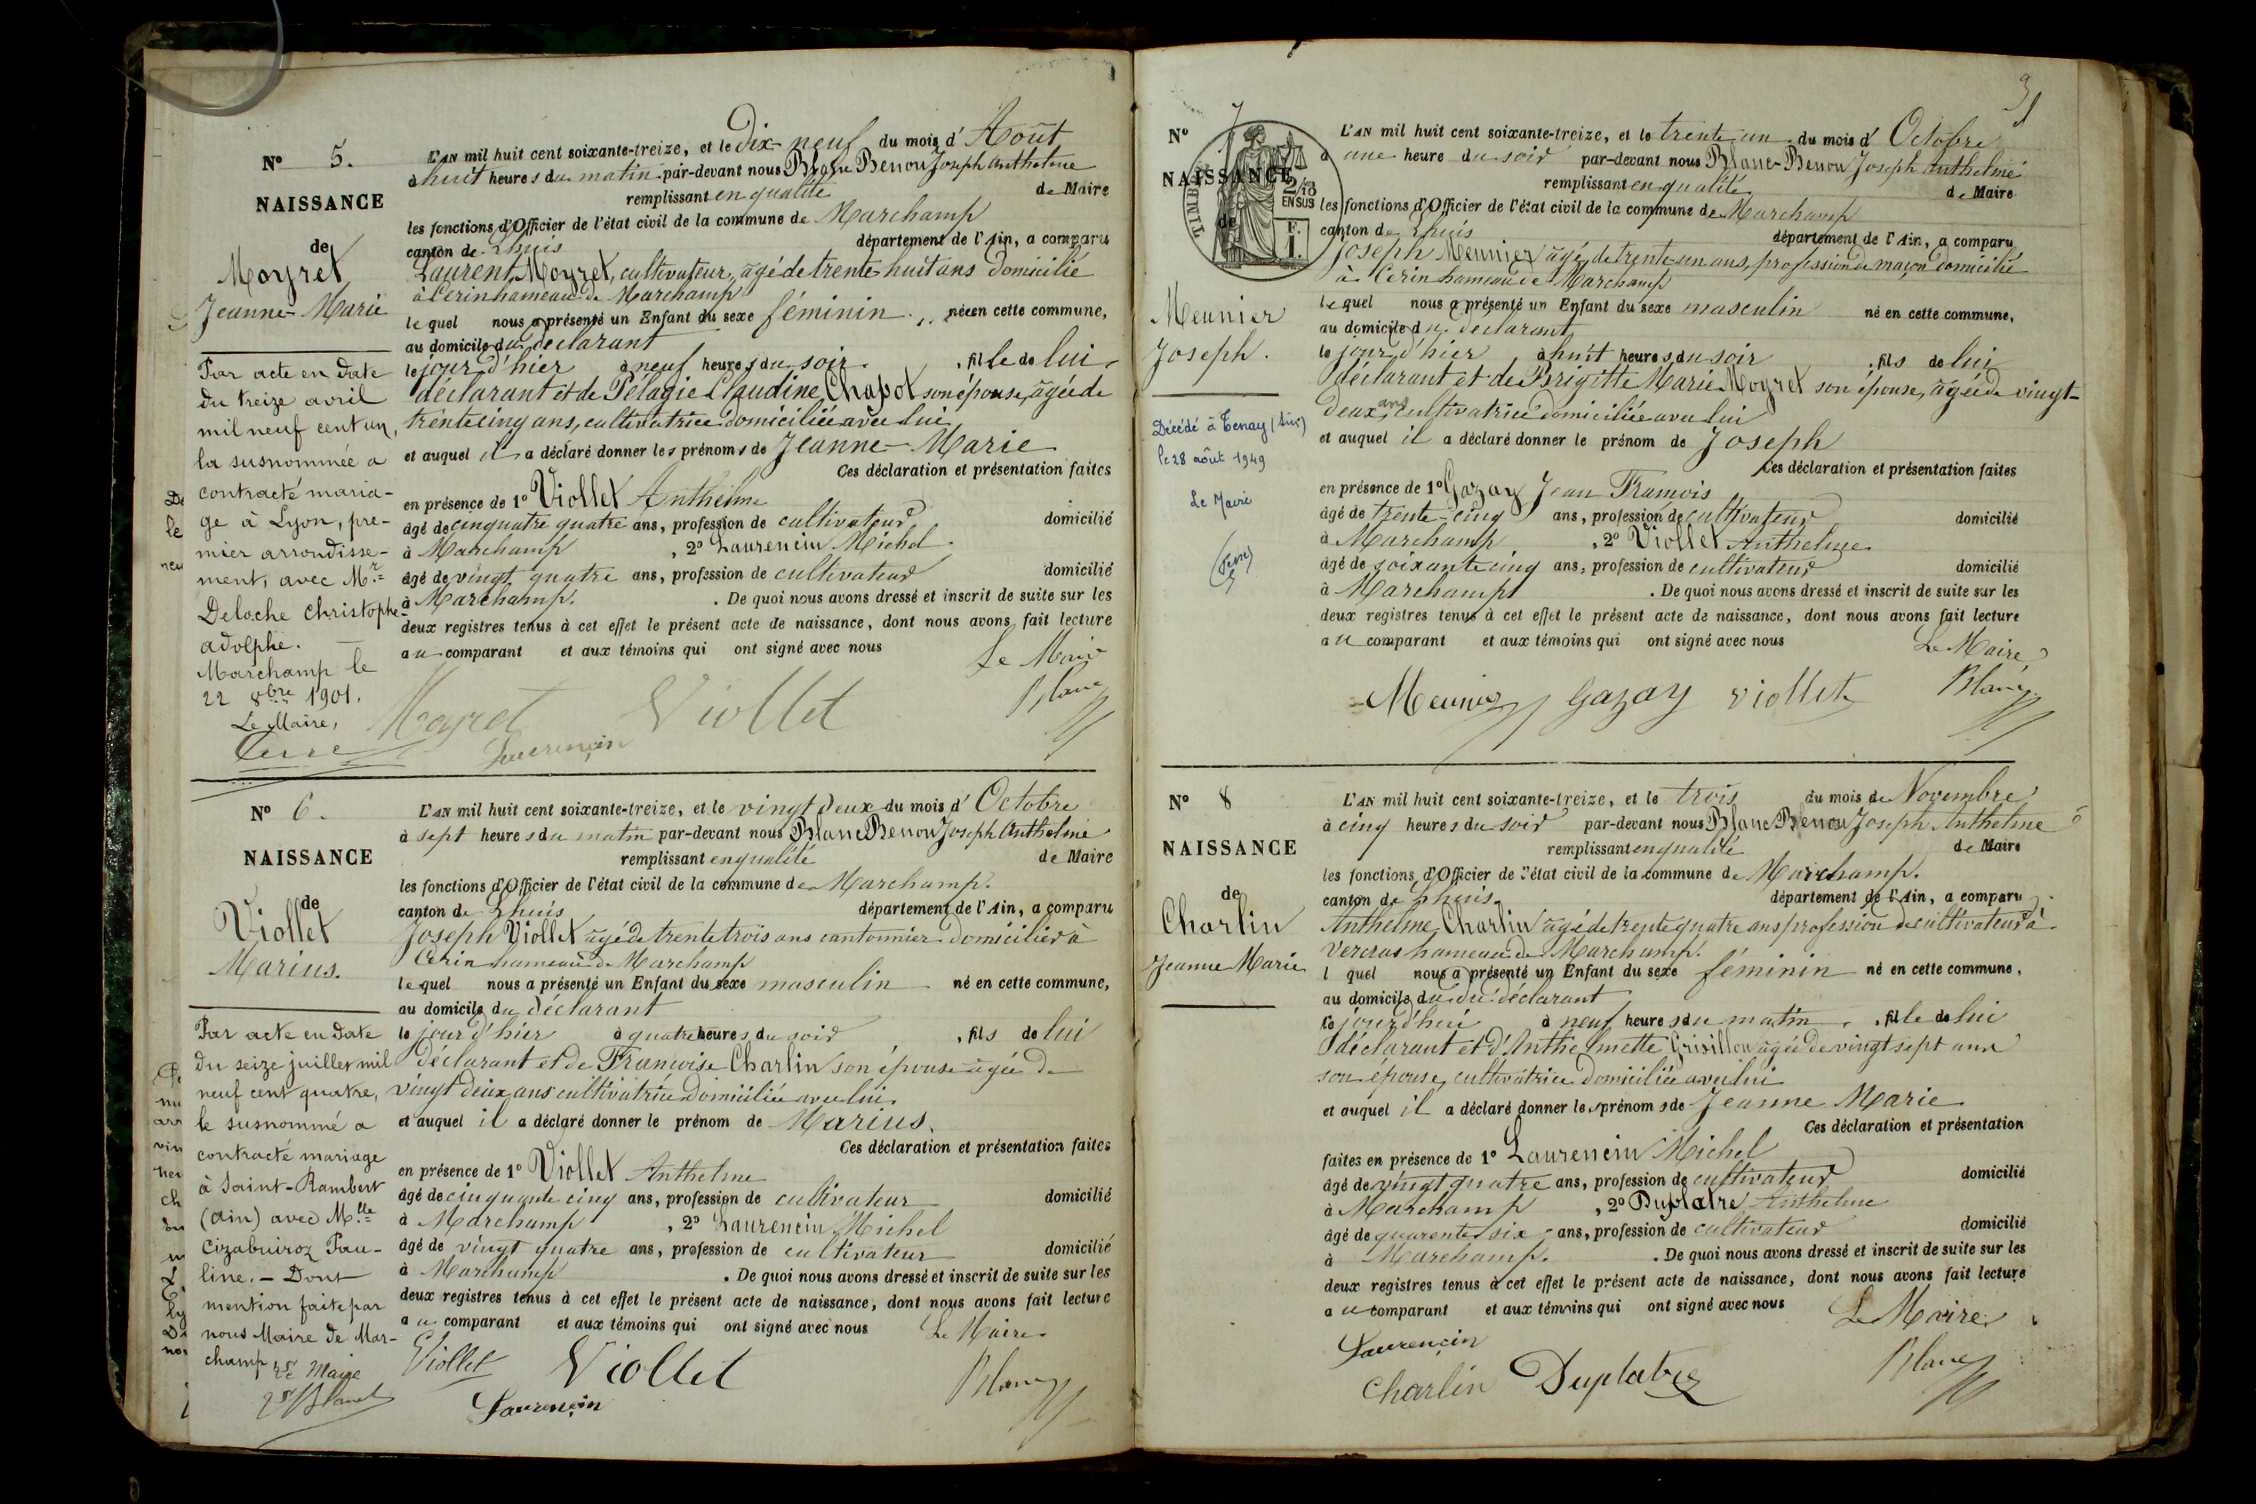 N° 5.
NAISSANCE
de
Moyret
Jeanne-Marie
Par acte en date
du treize avril
mil neuf cent un,
la susnommée a
contracté maria-
ge à Lyon, pre-
mier arrondisse-
ment, avec Mr
Deloche Christophe
adolphe.
Marchamp le
22 8bre 1901.
Le Maire,
L'AN mil huit cent soixante-treize, et le Dix-neuf du mois d' Août
à huit heures du matin par-devant nous Blanc Benon Joseph Anthelme
remplissant en qualité de Maire
les fonctions d'Officier de l'état civil de la commune de Marchamp
canton de Lhuis département de l'Ain, a comparu
Laurent Moyret, cultivateur, âgé de trente-huit ans domicilié
à Cerin hameau de Marchamp
lequel nous a présenté un Enfant du sexe féminin née en cette commune,
au domicile du déclarant
le jour d'hier à neuf heures du soir. , fille de lui
déclarant et de Pélagie Claudine Chapot son épouse, âgée de
trente cinq ans, cultivatrice domiciliée avec lui
et auquel il a déclaré donner les prénoms de Jeanne-Marie
Ces déclaration et présentation faites
en présence de 1° Viollet Anthelme
âgé de cinquatre quatre ans, profession de cultivateur domicilié
à Marchamp , 2° Laurencin Michel
âgé de vingt quatre ans, profession de cultivateur domicilié
à Marchamp. . De quoi nous avons dressé et inscrit de suite sur les
deux registres tenus à cet effet le présent acte de naissance, dont nous avons fait lecture
au comparant et aux témoins qui ont signé avec nous
Le Maire
Moyret Viollet Blanc
Laurencin
N° 6.
NAISSANCE
de
Viollet
Marius.
Par acte en date
du seize juillet mil
neuf cent quatre,
le susnommé a
contracté mariage
à Saint-Rambert
(ain) avec Mlle
Cizabuiroz Pau-
line. - Dont
mention faite par
nous Maire de Mar-
champ
L'AN mil huit cent soixante-treize, et le vingt deux du mois d' Octobre
à sept heures du matin par-devant nous Blanc Benon Joseph Anthelme
remplissant en qualité de Maire
les fonctions d'Officier de l'état civil de la commune de Marchamp.
canton de Lhuis département de l'Ain, a comparu
Joseph Viollet âgé de trente trois ans cantonnier domicilier à
Cerin hameau de Marchamp
lequel nous a présenté un Enfant du sexe masculin né en cette commune,
au domicile du déclarant
le jour d'hier à quatre heures du soir , fils de lui
déclarant et de Françoise Charlin son épouse âgée de
vingt deux ans cultivatrice domiciliée avec lui.
et auquel il a déclaré donner le prénom de Marius.
Ces déclaration et présentation faites
en présence de 1° Viollet Anthelme
âgé de cinquante cinq ans, profession de cultivateur domicilié
à Marchamp , 2° Laurencin Michel
âgé de vingt quatre ans, profession de cultivateur domicilié
à Marchamp . De quoi nous avons dressé et inscrit de suite sur les
deux registres tenus à cet effet le présent acte de naissance, dont nous avons fait lecture
au comparant et aux témoins qui ont signé avec nous
Le Maire
Viollet Viollet Blanc
Laurencin
N° 7
NAISSANCE
de
TIMBRE
2/10
EN SUS
F.
1.
Meunier
Joseph.
Décédé à Tenay (Ain)
le 28 août 1949
Le Maire
L'AN mil huit cent soixante-treize, et le trente un du mois d' Octobre
à une heure du soir par-devant nous Blanc-Benon Joseph Anthelme
remplissant en qualité de Maire
les fonctions d'Officier de l'état civil de la commune de Marchamp
canton de Lhuis département de l'Ain, a comparu
Joseph Meunier âgé de trente-un ans, profession de maçon domicilié
à Cerin hameau de Marchamp
lequel nous a présenté un Enfant du sexe masculin né en cette commune,
au domicile du déclarant
le jour d'hier à huit heures du soir , fils de lui
déclarant et de Brigitte Marie Moyret son épouse, âgée de vingt-
deux ans cultivatrice domiciliée avec lui
et auquel il a déclaré donner le prénom de Joseph
Ces déclaration et présentation faites
en présence de 1° Gazay Jean François
âgé de trente-cinq ans, profession de cultivateur domicilié
à Marchamp , 2° Viollet Anthelme
âgé de soixante cinq ans, profession de cultivateur domicilié
à Marchamp . De quoi nous avons dressé et inscrit de suite sur les
deux registres tenus à cet effet le présent acte de naissance, dont nous avons fait lecture
au comparant et aux témoins qui ont signé avec nous
Le Maire
Meunier Gazay Viollet Blanc
N° 8
NAISSANCE
de
Charlin
Jeanne Marie
L'AN mil huit cent soixante-treize, et le trois du mois de Novembre
à cinq heures du soir par-devant nous Blanc Benon Joseph Anthelme
remplissant en qualité de Maire
les fonctions d'Officier de l'état civil de la commune de Marchamp.
canton de Lhuis département de l'Ain, a comparu
Anthelme Charlin âgé de trente quatre ans profession de cultivateur à
Vercras hameau de Marchamp.
l quel nous a présenté un Enfant du sexe féminin né en cette commune,
au domicile du du déclarant
le jourd'hui à neuf heures du matin , fille de lui
déclarant et d'Anthelmette Grisillon âgée de vingt sept ans
son épouse, cultivatrice domiciliée avec lui
et auquel il a déclaré donner les prénoms de Jeanne Marie
Ces déclaration et présentation
faites en présence de 1° Laurencin Michel
âgé de vingt quatre ans, profession de cultivateur domicilié
à Marchamp , 2° Duplatre Anthelme
âgé de quarente six ans, profession de cultivateur domicilié
à Marchamp. . De quoi nous avons dressé et inscrit de suite sur les
deux registres tenus à cet effet le présent acte de naissance, dont nous avons fait lecture
au comparant et aux témoins qui ont signé avec nous
Le Maire
Laurencin Blanc
Charlin Duplatre